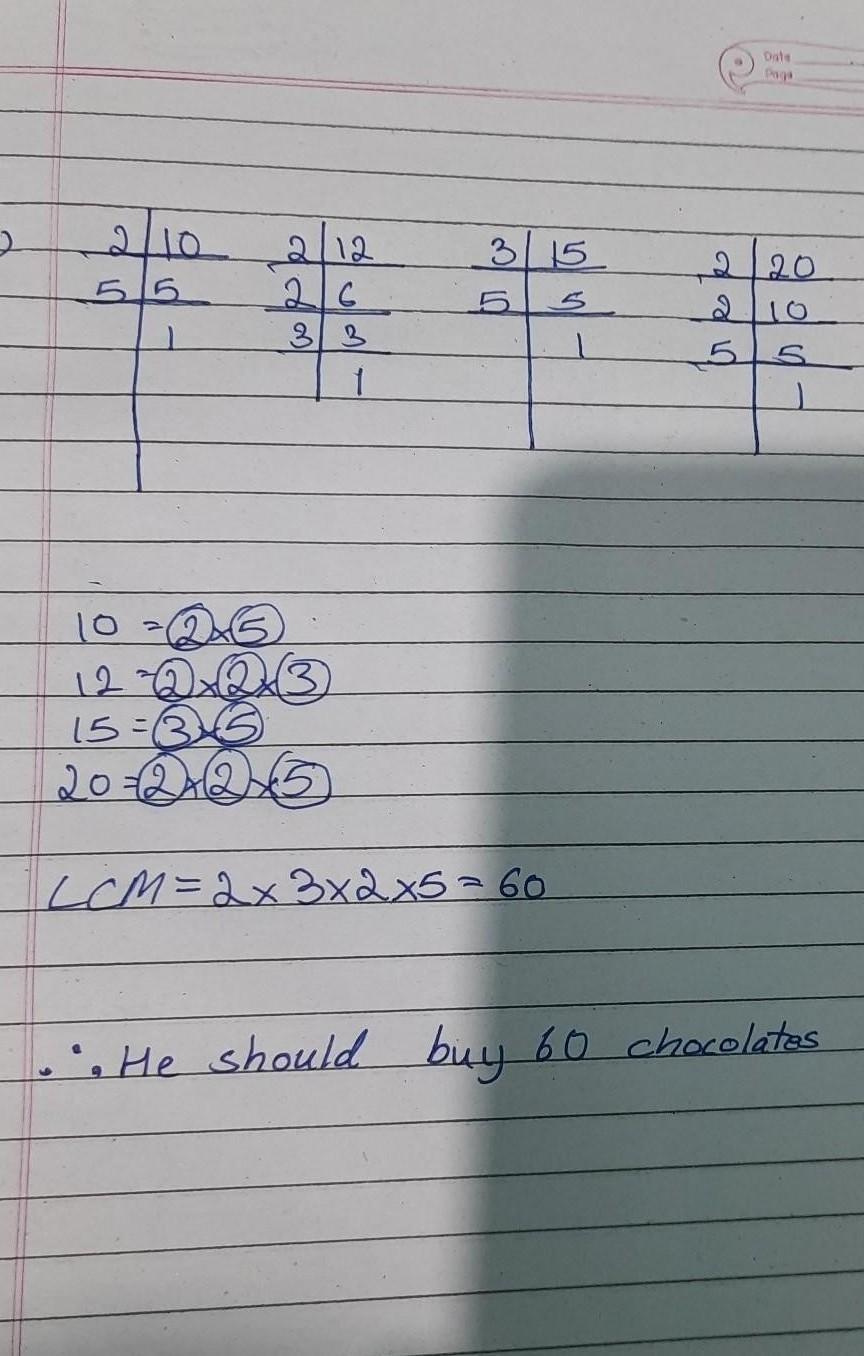 Date
Page
2|10 2|12 3|15 2|20
5|5 2|6 5|5 2|10
1 3|3 1 5|5
1 1
10 = 2×5
12 = 2×2×3
15 = 3×5
20 = 2×2×5
LCM = 2×3×2×5 = 60
∴ He should buy 60 chocolates